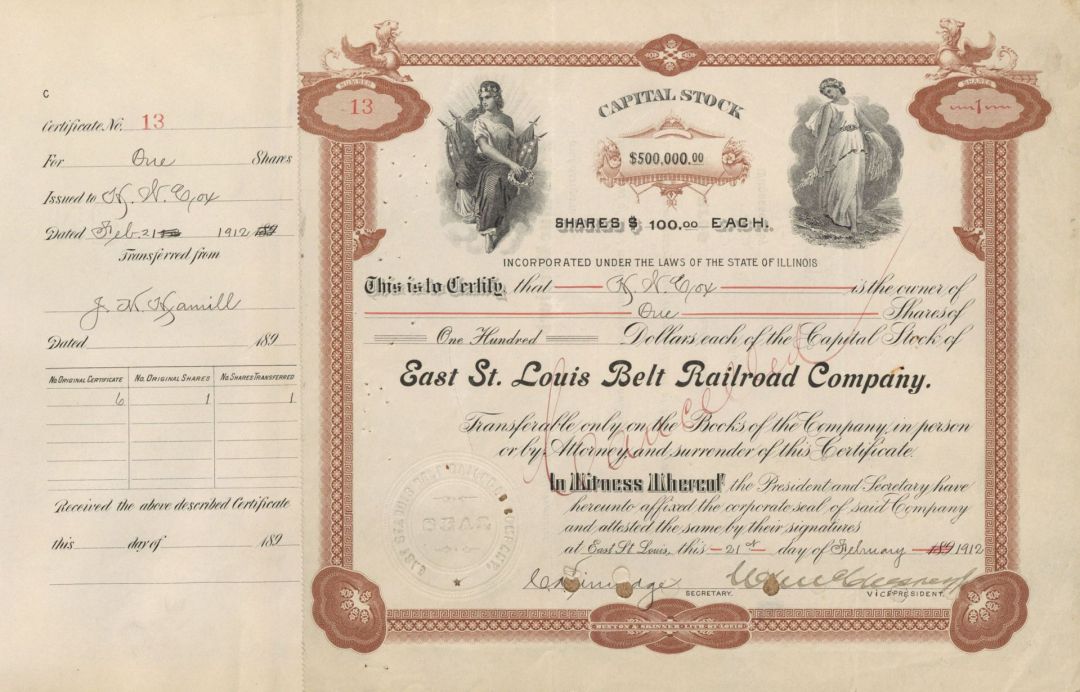 C
Certificate No. 13
For One Shares
Issued to H. N. Cox
Dated Feb. 21 1912 189
Transferred from
J. H. Hamill
Dated 189
No. Original Certificate No. Original Shares No. Shares Transferred
6 1 1
Received the above described Certificate
this day of 189
NUMBER
13
SHARES
1
CAPITAL STOCK
$500,000.00
SHARES $ 100.00 EACH.
INCORPORATED UNDER THE LAWS OF THE STATE OF ILLINOIS
This is to Certify, that H. N. Cox is the owner of
One Shares of
One Hundred Dollars each of the Capital Stock of
East St. Louis Belt Railroad Company.
Cancelled
Transferable only on the Books of the Company, in person
or by Attorney, and surrender of this Certificate.
In Witness Whereof the President and Secretary have
hereunto affixed the corporate seal of said Company
and attested the same by their signatures
at East St. Louis, this 21st day of February 189 1912
SEAL
SECRETARY. VICE PRESIDENT.
BUXTON & SKINNER LITH. ST. LOUIS